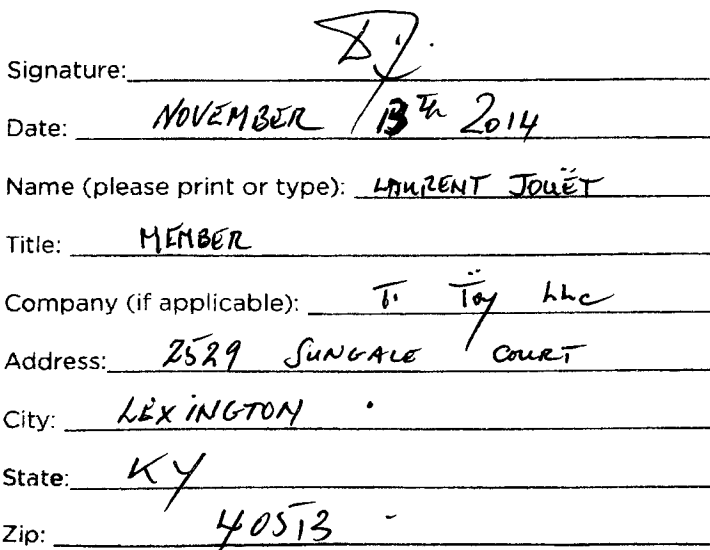 Signature:
Date: NOVEMBER 13th 2014
Name (please print or type): LAURENT JOUËT
Title: MEMBER
Company (if applicable): Ti Toy LLC
Address: 2529 SUNGALE COURT
City: LEXINGTON
State: KY
Zip: 40513